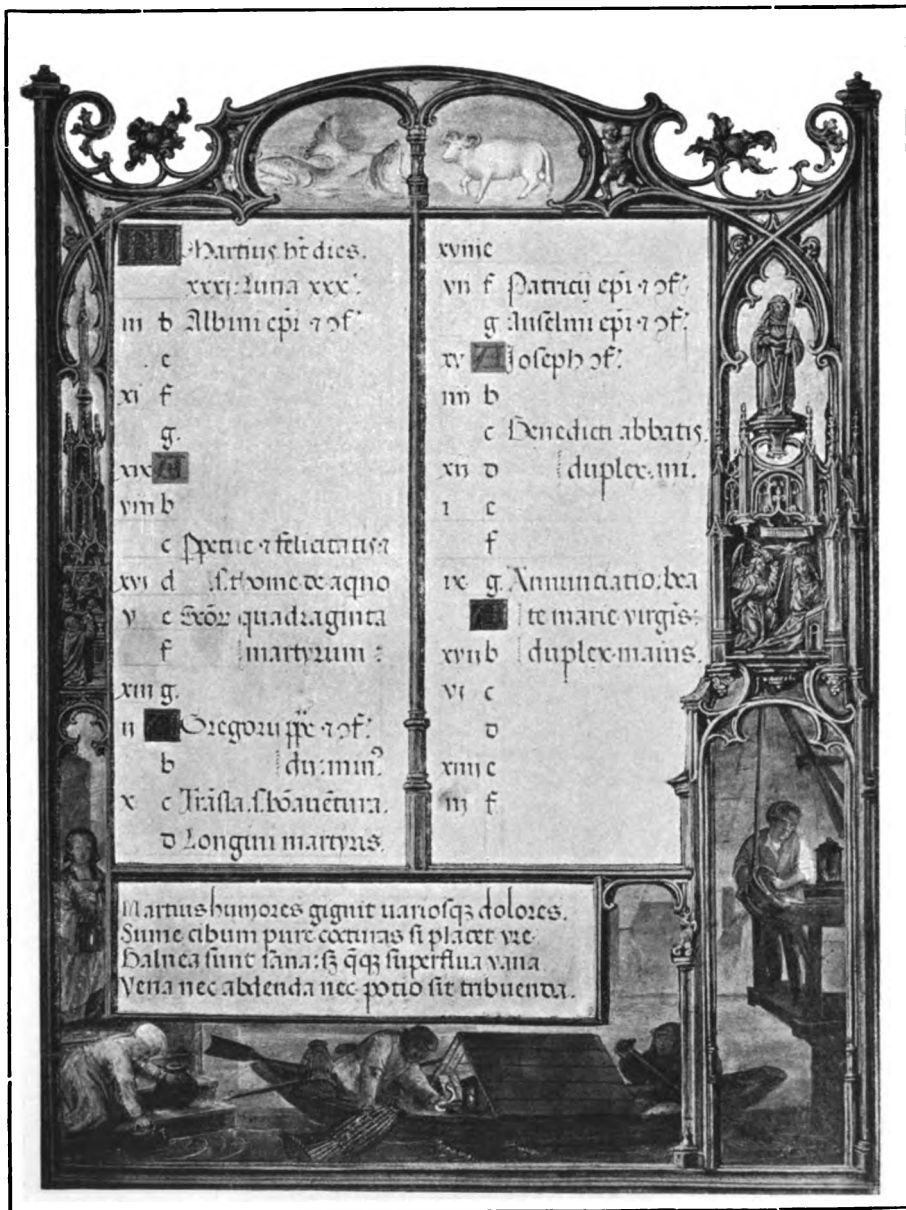 KL Martius hr̃ dies.
xxxi. Luna xxx.
iii d Albini ep̃i ⁊ ɔf.
e
xi f
g.
xix A
viii b
c Ppetue ⁊ felicitatis ⁊
xvi d s. thome de aq̃no
v e Scõꝝ quadraginta
f martyrum :
xiii g.
ii A Gregorii pp̃e ⁊ ɔf.
b du. min⁹.
x c Trãsla. s. bõauẽtura.
d Longini martyris.
xviii e
vii f Patricij ep̃i ⁊ ɔf.
g Anselmi ep̃i ⁊ ɔf.
xv A Joseph ɔf.
iiii b
c Benedicti abbatis.
xii d duplex. mi.
i e
f
ix g. Annunciatio. bea
A te marie virgĩs:
xvii b duplex. maius.
vi c
d
xiiii e
iii f
Martius humores gignit uariosqꝫ dolores.
Sume cibum pure cocturas si placet vre.
Balnea sunt sana: sꝫ q̃qꝫ superflua vana
Vena nec abdenda nec potio sit tribuenda.